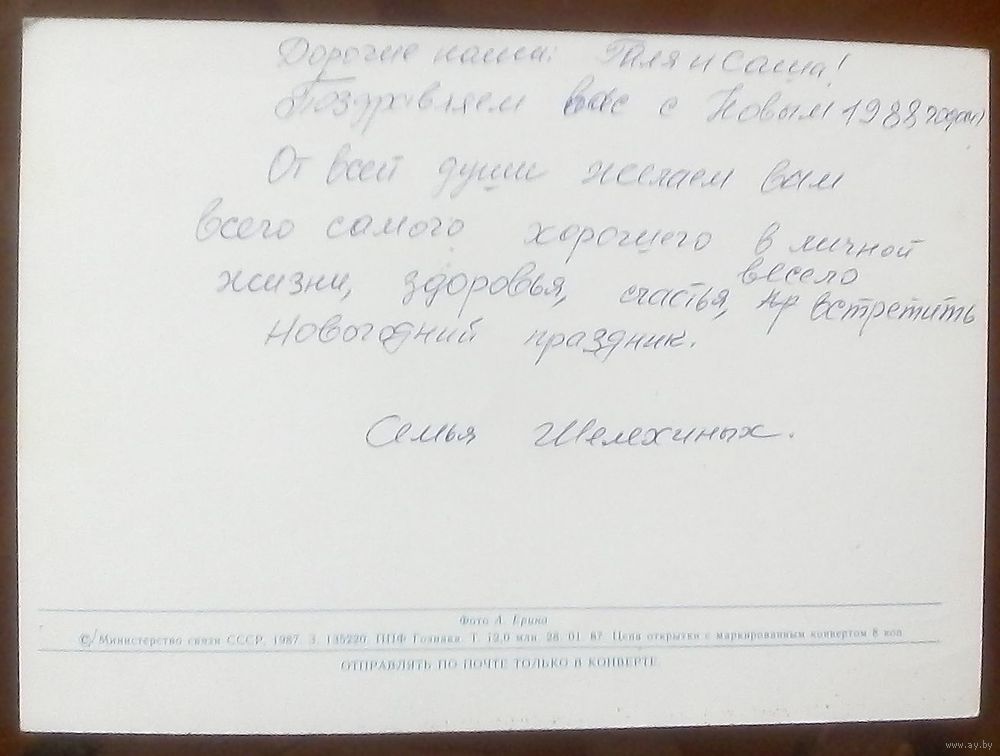 Дорогие наши: Галя и Саша!
Поздравляем вас с Новым 1988 годом
От всей души желаем вам
всего самого хорошего в личной
жизни, здоровья, счастья, весело встретить
Новогодний праздник.
Семья Шелехиных.
Фото А. Ерина
© Министерство связи СССР, 1987. З. 145220. ППФ Гознака. Т. 12,0 млн. 28. 01. 87. Цена открытки с маркированным конвертом 8 коп.
ОТПРАВЛЯТЬ ПО ПОЧТЕ ТОЛЬКО В КОНВЕРТЕ
www.ay.by